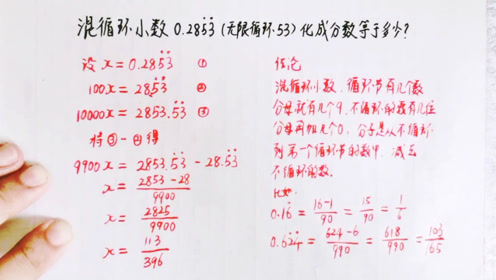 混循环小数 0.285̇3̇ (无限循环·53) 化成分数等于多少?
设 x = 0.285̇3̇ ①
100x = 28.5̇3̇ ②
10000x = 2853.5̇3̇ ③
将③-②得
9900x = 2853.5̇3̇ - 28.5̇3̇
x = 2853-28/9900
x = 2825/9900
x = 113/396
结论
混循环小数、循环节有几个数
分母就有几个9，不循环的数有几位
分母再加几个0，分子是从不循环
到第一个循环节的数中，减去
不循环的数。
比如
0.16̇ = 16-1/90 = 15/90 = 1/6
0.62̇4̇ = 624-6/990 = 618/990 = 103/165